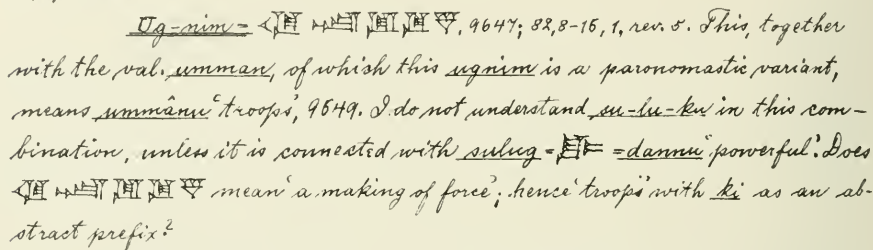 Ug-nim = , 9647; 82,8-16, 1, rev. 5. This, together
with the val. umman, of which this ugnim is a paronomastic variant,
means ummânu ‘troops’, 9649. I do not understand su-lu-ku in this com-
bination, unless it is connected with sulug = = dannu ‘powerful’. Does
mean ‘a making of force’; hence ‘troops’ with ki as an ab-
stract prefix?